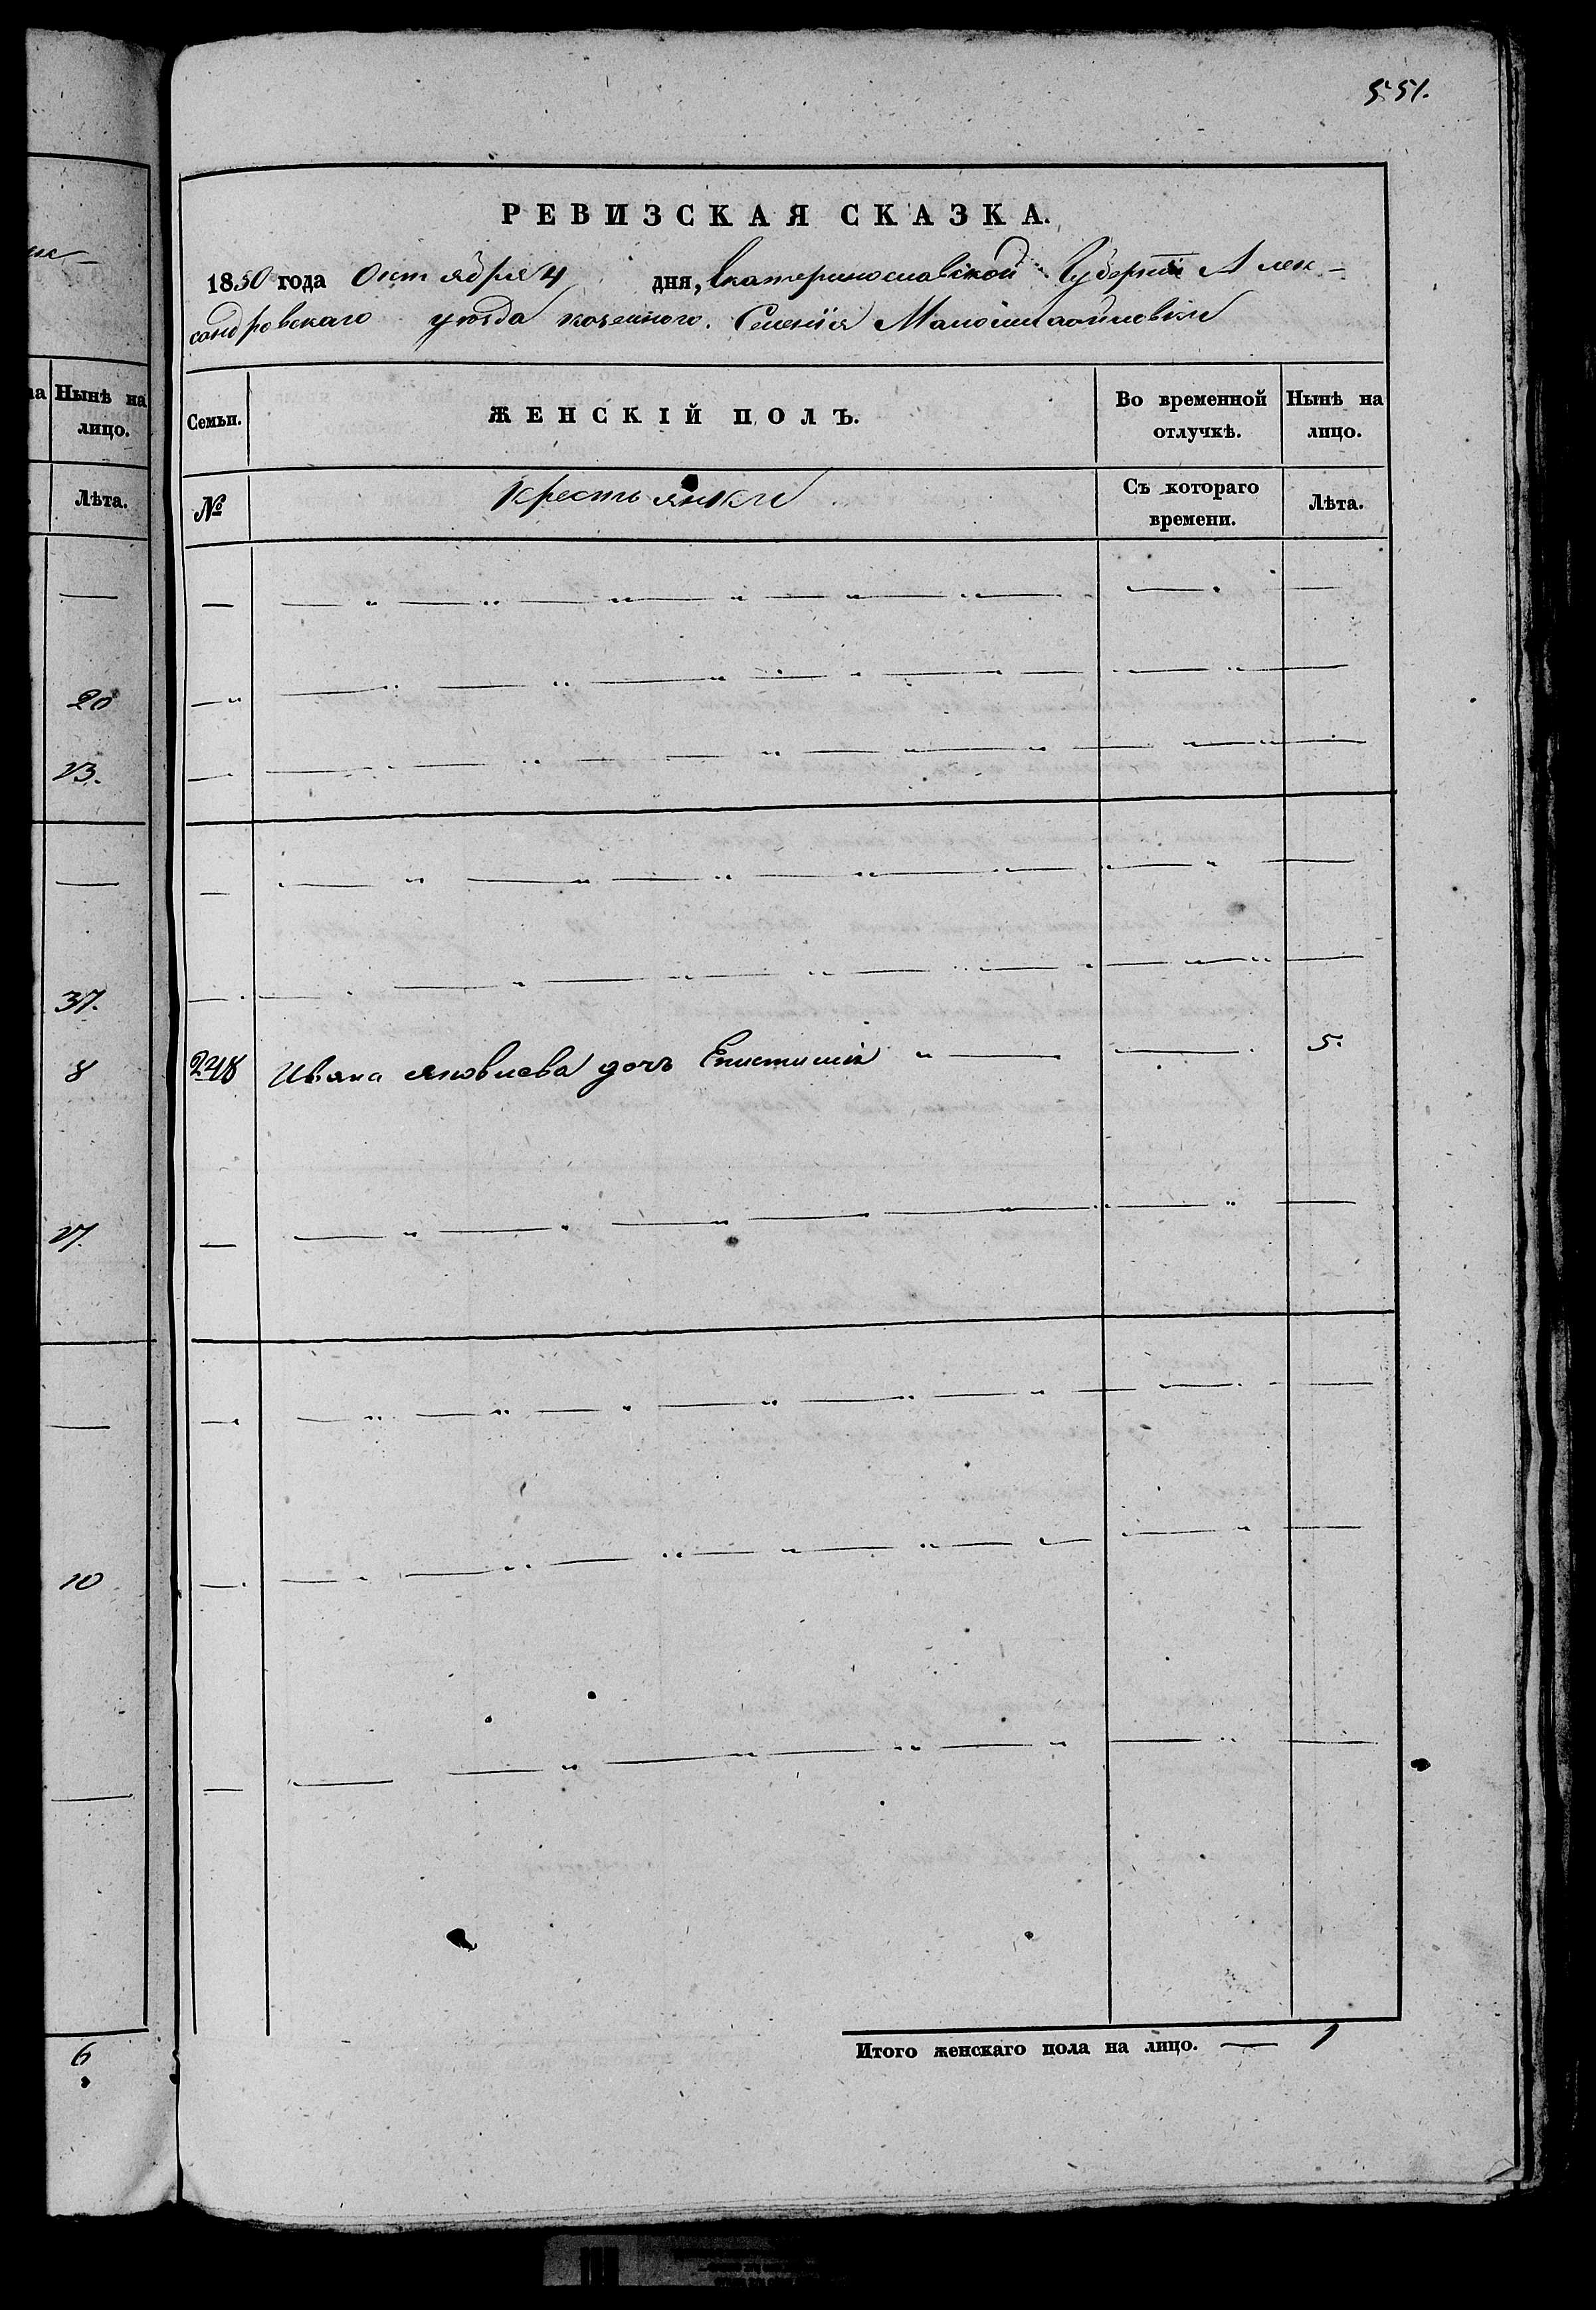 551.
РЕВИЗСКАЯ СКАЗКА.
1850 года Октября 4 дня, Екатеринославской Губернии Алек-
сандровскаго уезда казенного Селения Маломихайловки
на Нынѣ на
лицо.
Лѣта.
Семьи.
ЖЕНСКІЙ ПОЛЪ.
Во временной
отлучкѣ.
Нынѣ на
лицо.
№
Крестьянки
Съ котораго
времени.
Лѣта.
20
23.
37.
8
248 Ивана Яковлева дочь Епистимия 5.
27.
10
6
Итого женскаго пола на лицо. — 1